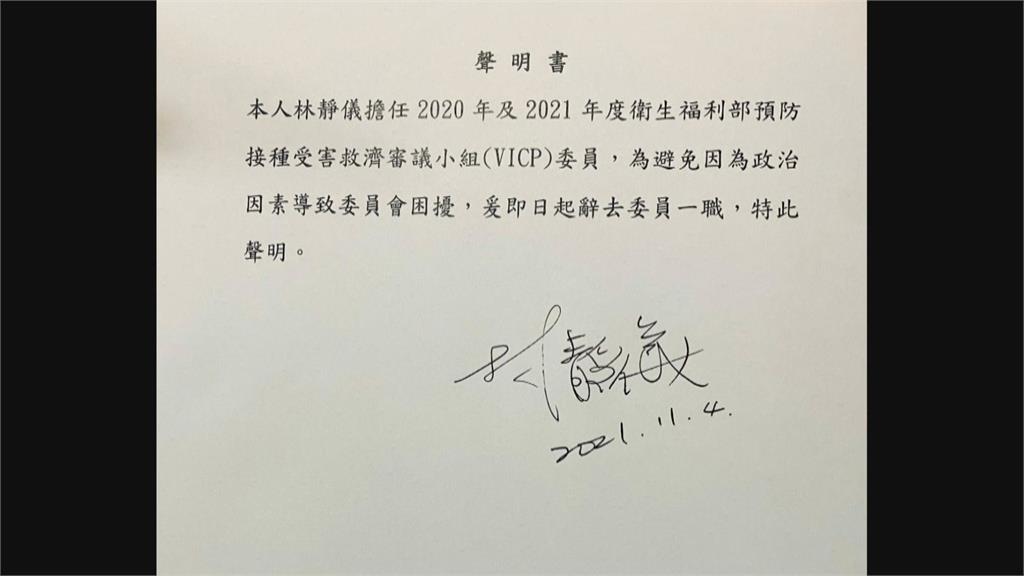 聲明書
本人林靜儀擔任2020年及2021年度衛生福利部預防
接種受害救濟審議小組(VICP)委員，為避免因為政治
因素導致委員會困擾，爰即日起辭去委員一職，特此
聲明。
林靜儀
2021.11.4.